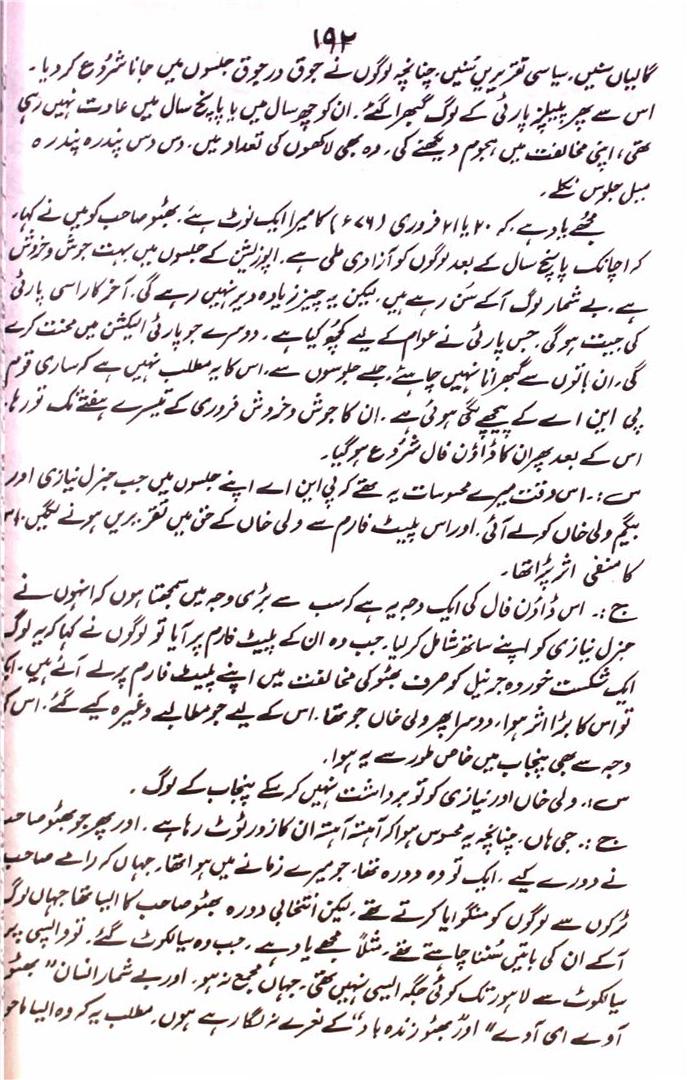 ۱۹۲
گالیاں سنیں، سیاسی تقریریں سُنیں، چنانچہ لوگوں نے جوق در جوق جلسوں میں جانا شروع کر دیا۔
اس سے پھر پیپلز پارٹی کے لوگ گھبرا گئے۔ ان کو چھ سال میں یا پانچ سال میں عادت نہیں رہی
تھی، اپنی مخالفت میں ہجوم دیکھنے کی۔ وہ بھی لاکھوں کی تعداد میں، دس دس پندرہ پندرہ
میل جلوس نکلے۔
مجھے یاد ہے، کہ ۲۰ یا ۲۱ فروری (۷۶ء) کا میرا ایک نوٹ ہے، بھٹو صاحب کو میں نے کہا،
کہ اچانک پانچ سال کے بعد لوگوں کو آزادی ملی ہے۔ اپوزیشن کے جلسوں میں بہت جوش و خروش
ہے، بے شمار لوگ آکے سُن رہے ہیں، لیکن یہ چیز زیادہ دیر نہیں رہے گی، آخر کار اسی پارٹی
کی جیت ہو گی، جس پارٹی نے عوام کے لیے کچھ کیا ہے۔ دوسرے جو پارٹی الیکشن میں محنت کرے
گی، ان باتوں سے گھبرانا نہیں چاہئے، جلسے جلوسوں سے، اس کا یہ مطلب نہیں ہے کہ ساری قوم
پی این اے کے پیچھے لگی ہوئی ہے۔ ان کا جوش و خروش فروری کے تیسرے ہفتے تک تو رہا،
اس کے بعد پھر ان کا ڈاؤن فال شروع ہو گیا۔
س:۔ اس وقت میرے محسوسات یہ تھے کہ پی این اے اپنے جلسوں میں جب جنرل نیازی اور
بیگم ولی خاں کو لے آئی، اور اس پلیٹ فارم سے ولی خاں کے حق میں تقریریں ہونے لگیں،
کا منفی اثر پڑا تھا۔
ج:۔ اس ڈاؤن فال کی ایک وجہ یہ ہے کہ سب سے بڑی وجہ میں سمجھتا ہوں کہ انہوں نے
جنرل نیازی کو اپنے ساتھ شامل کر لیا۔ جب وہ ان کے پلیٹ فارم پر آیا تو لوگوں نے کہا کہ یہ لوگ
ایک شکست خوردہ جرنیل کو صرف بھٹو کی مخالفت میں اپنے پلیٹ فارم پر لے آئے ہیں۔
تو اس کا بڑا اثر ہوا، دوسرا پھر ولی خاں جو تھا، اس کے لیے جو مطالبے وغیرہ کیے گئے، اس کی
وجہ سے بھی پنجاب میں خاص طور سے یہ ہوا۔
س:۔ ولی خاں اور نیازی کو تو برداشت نہیں کر سکے پنجاب کے لوگ۔
ج:۔ جی ہاں، چنانچہ یہ محسوس ہوا کہ آہستہ آہستہ ان کا زور ٹوٹ رہا ہے۔ اور پھر جو بھٹو صاحب
نے دورے کیے، ایک تو وہ دورہ تھا، جو میرے زمانے میں ہوا تھا۔ جہاں کہ رامے صاحب
ٹرکوں سے لوگوں کو منگوایا کرتے تھے، لیکن انتخابی دورہ بھٹو صاحب کا ایسا تھا جہاں لوگ
آکے ان کی باتیں سُننا چاہتے تھے، مثلاً مجھے یاد ہے، جب وہ سیالکوٹ گئے، تو واپسی پر
سیالکوٹ سے لاہور تک کوئی جگہ ایسی نہیں تھی، جہاں مجمع نہ ہو، اور بے شمار انسان "بھٹو
آوے ای آوے" اور "بھٹو زندہ باد" کے نعرے نہ لگا رہے ہوں۔ مطلب یہ کہ وہ ایسا